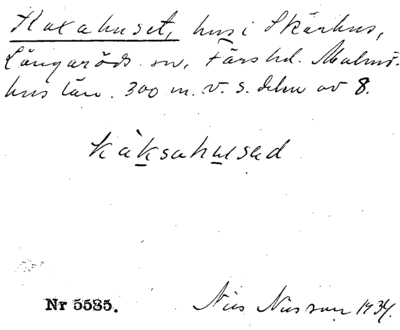 Kaxahuset, hus i Skärhus,
Långaröds sn, Färs hd. Malmö-
hus län. 300 m. v. s. delen av 8.
kàksahusəd
Nr 5585.
Nils Nilsson 1934.